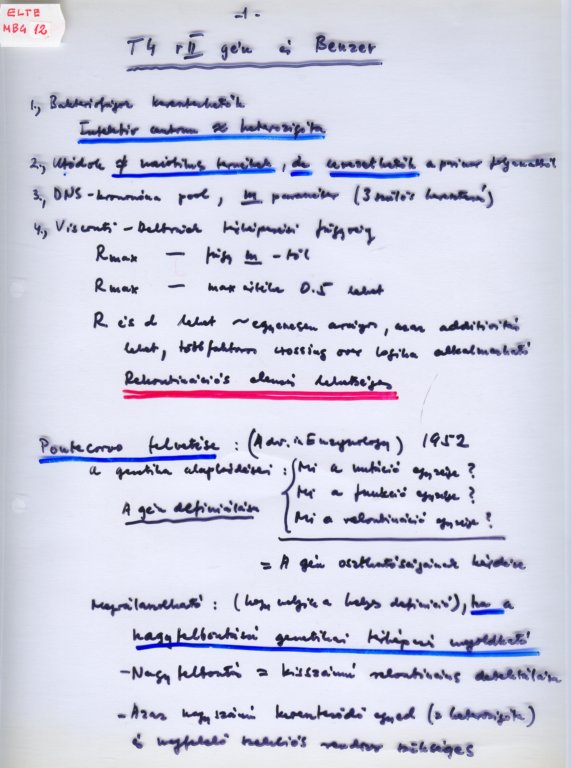 ELTE
MBG 12
-1-
T4 rII gén és Benzer
1., Bakteriofágok keresztezhetők
Infektív centrum ≈ heterozigóta
2., Utódok of meiotikus termékek, de levezethetők a primer
3., DNS-kromoszóma pool, m paraméter (3 szülős keresztezés)
4., Visconti-Delbrück térképezési függvény
Rmax — függ m-től
Rmax — max értéke 0.5 lehet
R és d lehet ~ egyenesen arányos, azaz additivitás
lehet, többfaktoros crossing over logika alkalmazható
Rekombinációs elemzés lehetséges
Pontecorvo felvetése : (Adv. in Enzymology) 1952
a genetika alapkérdései : Mi a mutáció egysége ?
Mi a funkció egysége ?
A gén definiálása
Mi a rekombináció egysége ?
= A gén oszthatóságának kérdése
Megválaszolható : (hogy melyik a helyes definíció), ha a
nagyfelbontású genetikai térképezés megoldható
- Nagy felbontás = kisszámú rekombináns detektálása
- Azaz nagy számú keresztező egyed (≈ heterozigóta)
és megfelelő szelekciós rendszer szükséges